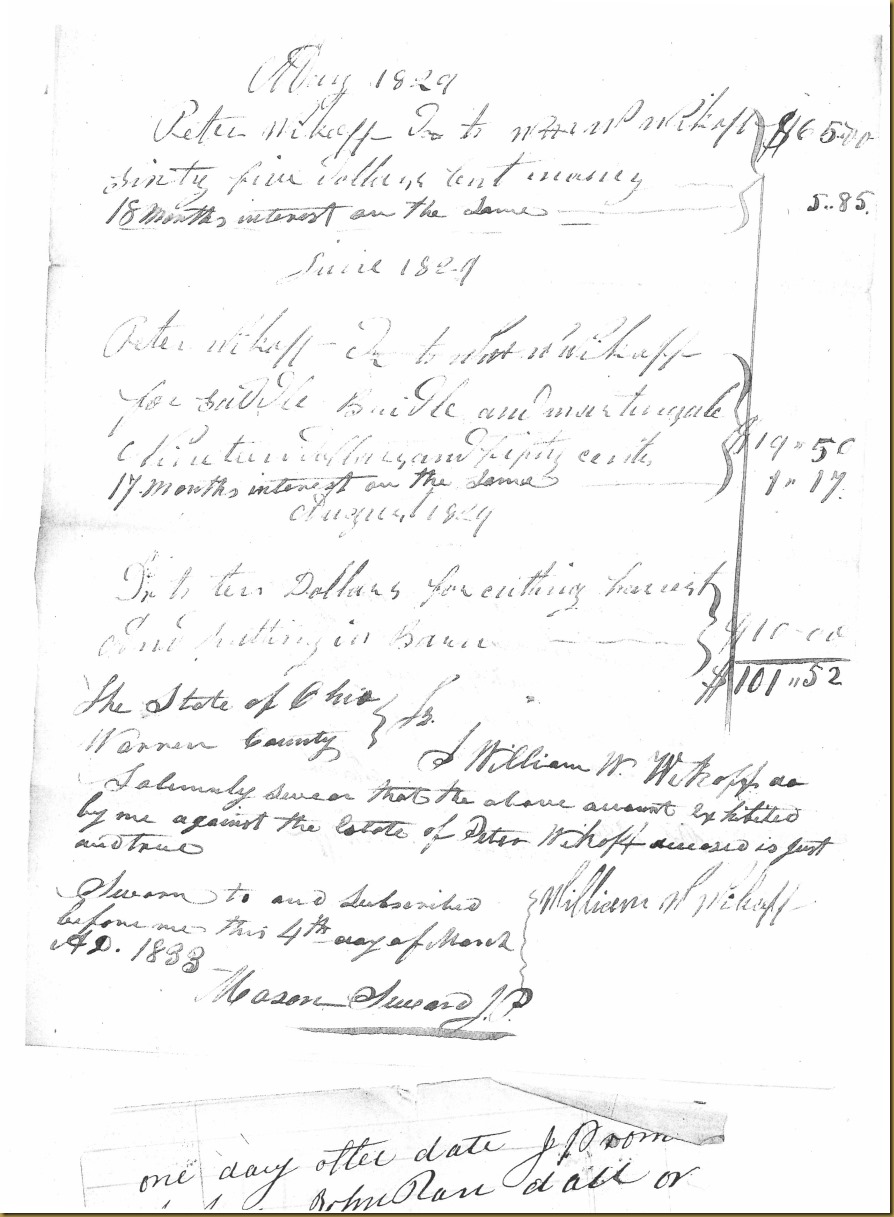 May 1829
Peter Wikoff Dr to Wm W Wikoff $65.00
sixty five dollars lent money
18 Months interest on the Same 5..85.
June 1829
Peter Wikoff Dr to Wm W Wikoff
for saddle Bridle and martingale
Nineteen dollars and fifty cents $19"50
17 Months interest on the Same 1"17.
August 1829
Dr to ten Dollars for cutting harvest
and putting in Barn $10-00
$101"52
The State of Ohio
Warren County } Ss.
I William W. Wikoff do
Solemnly swear that the above amount exhibited
by me against the Estate of Peter Wikoff deceased is just
and true
William W Wikoff
Sworn to and subscribed
before me this 4th day of March
AD. 1833
Mason Seward J.P.
one day after date I Prom
John Ran dall or